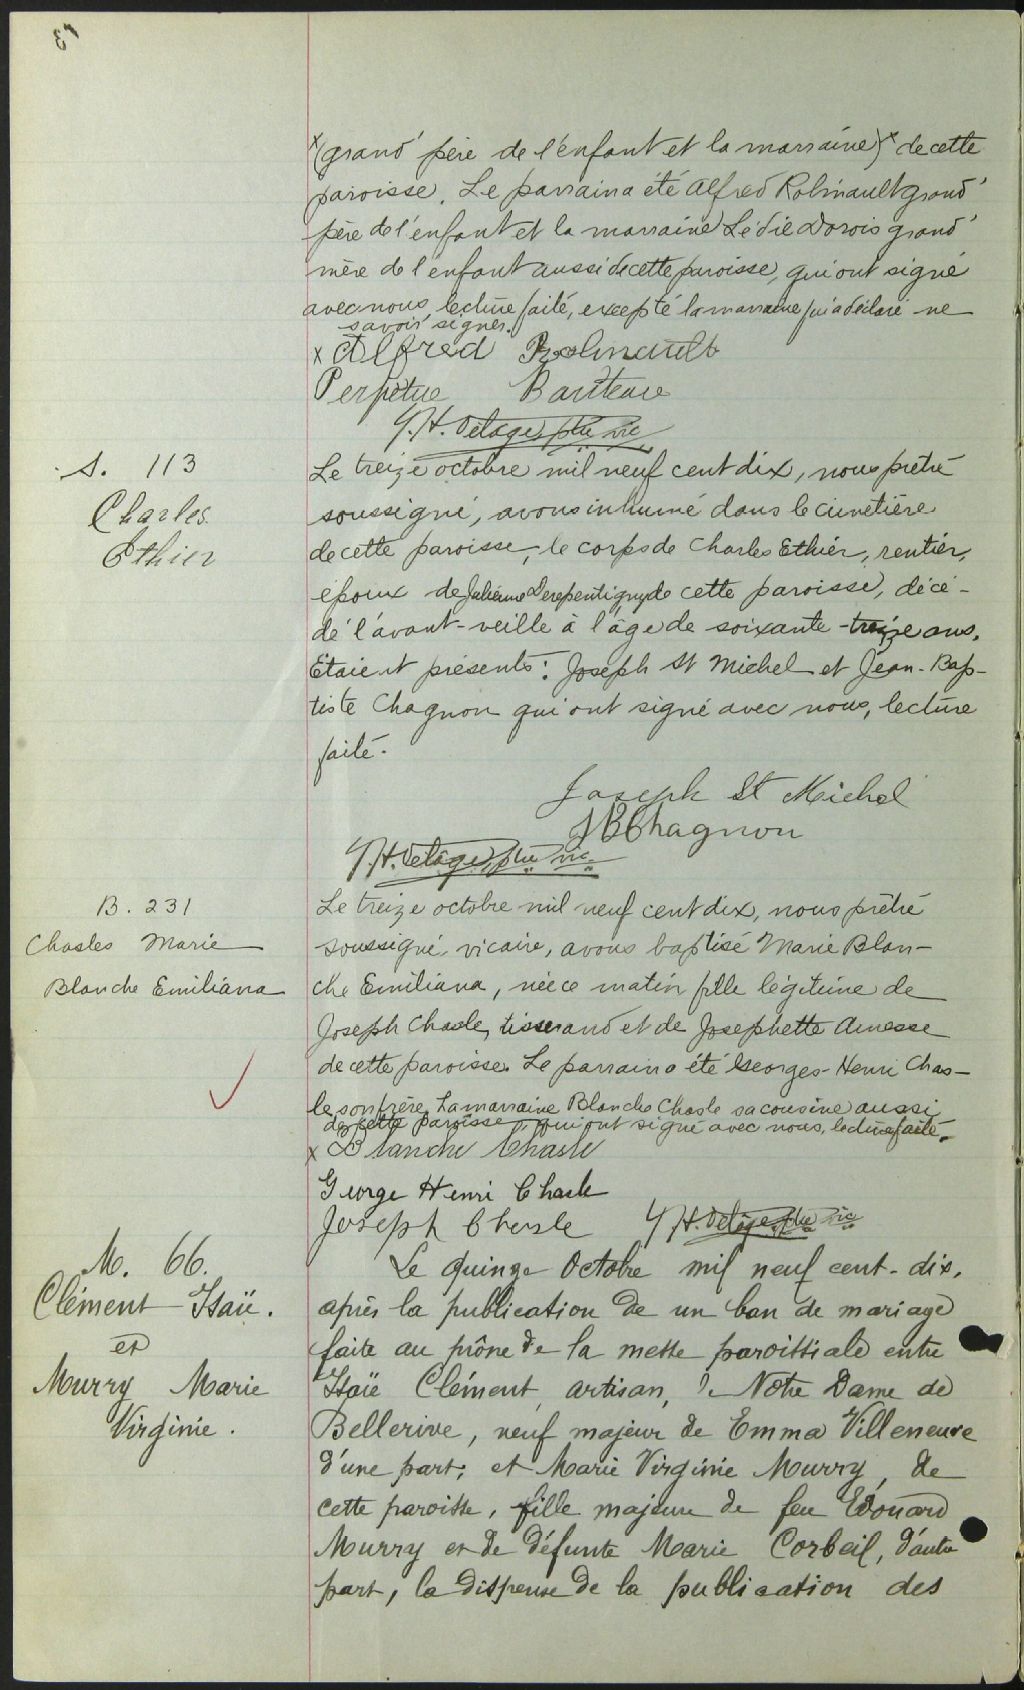 x(grand'père de l'enfant et la marraine)x de cette
paroisse. Le parrain a été Alfred Robinault grand'
père de l'enfant et la marraine Lédie Darois grand'
mère de l'enfant aussi de cette paroisse, qui ont signé
avec nous, lecture faite, excepté la marraine qui a déclaré ne
savoir signer.
x Alfred Robinault
Perpetue
J. H. Delage, ptre vic
S. 113
Charles
Ethier
Le treize octobre mil neuf cent dix, nous prêtre
soussigné, avons inhumé dans le cimetière
de cette paroisse, le corps de Charles Ethier, rentier,
époux de Julienne Derepentigny de cette paroisse, décé-
dé l'avant-veille à l'âge de soixante-treize ans.
Etaient présents: Joseph St Michel et Jean-Bap-
tiste Chagnon qui ont signé avec nous, lecture
faite.
Joseph St Michel
JB Chagnon
J. H. Delage, ptre vic
B. 231
Chasles Marie
Blanche Emiliana
Le treize octobre mil neuf cent dix, nous prêtre
soussigné, vicaire, avons baptisé Marie Blan-
che Emiliana, née ce matin fille légitime de
Joseph Chasle, tisserand et de Josephette Amesse
de cette paroisse. Le parrain a été Georges-Henri Chas-
le son frère. La marraine Blanche Chasle sa cousine aussi
de cette paroisse qui ont signé avec nous, lecture faite.
x Blanche Chasle
George Henri Chasle
Joseph Chasle J. H. Delage, ptre vic
M. 66.
Clément Isaïe.
et
Murry Marie
Virginie.
Le quinze Octobre mil neuf cent-dix,
après la publication de un ban de mariage
faite au prône de la messe paroissiale entre
Isaïe Clément, artisan, de Notre Dame de
Bellerive, veuf majeur de Emma Villeneuve
d'une part; et Marie Virginie Murry, de
cette paroisse, fille majeure de feu Edouard
Murry et de défunte Marie Corbeil, d'autre
part, la dispense de la publication des